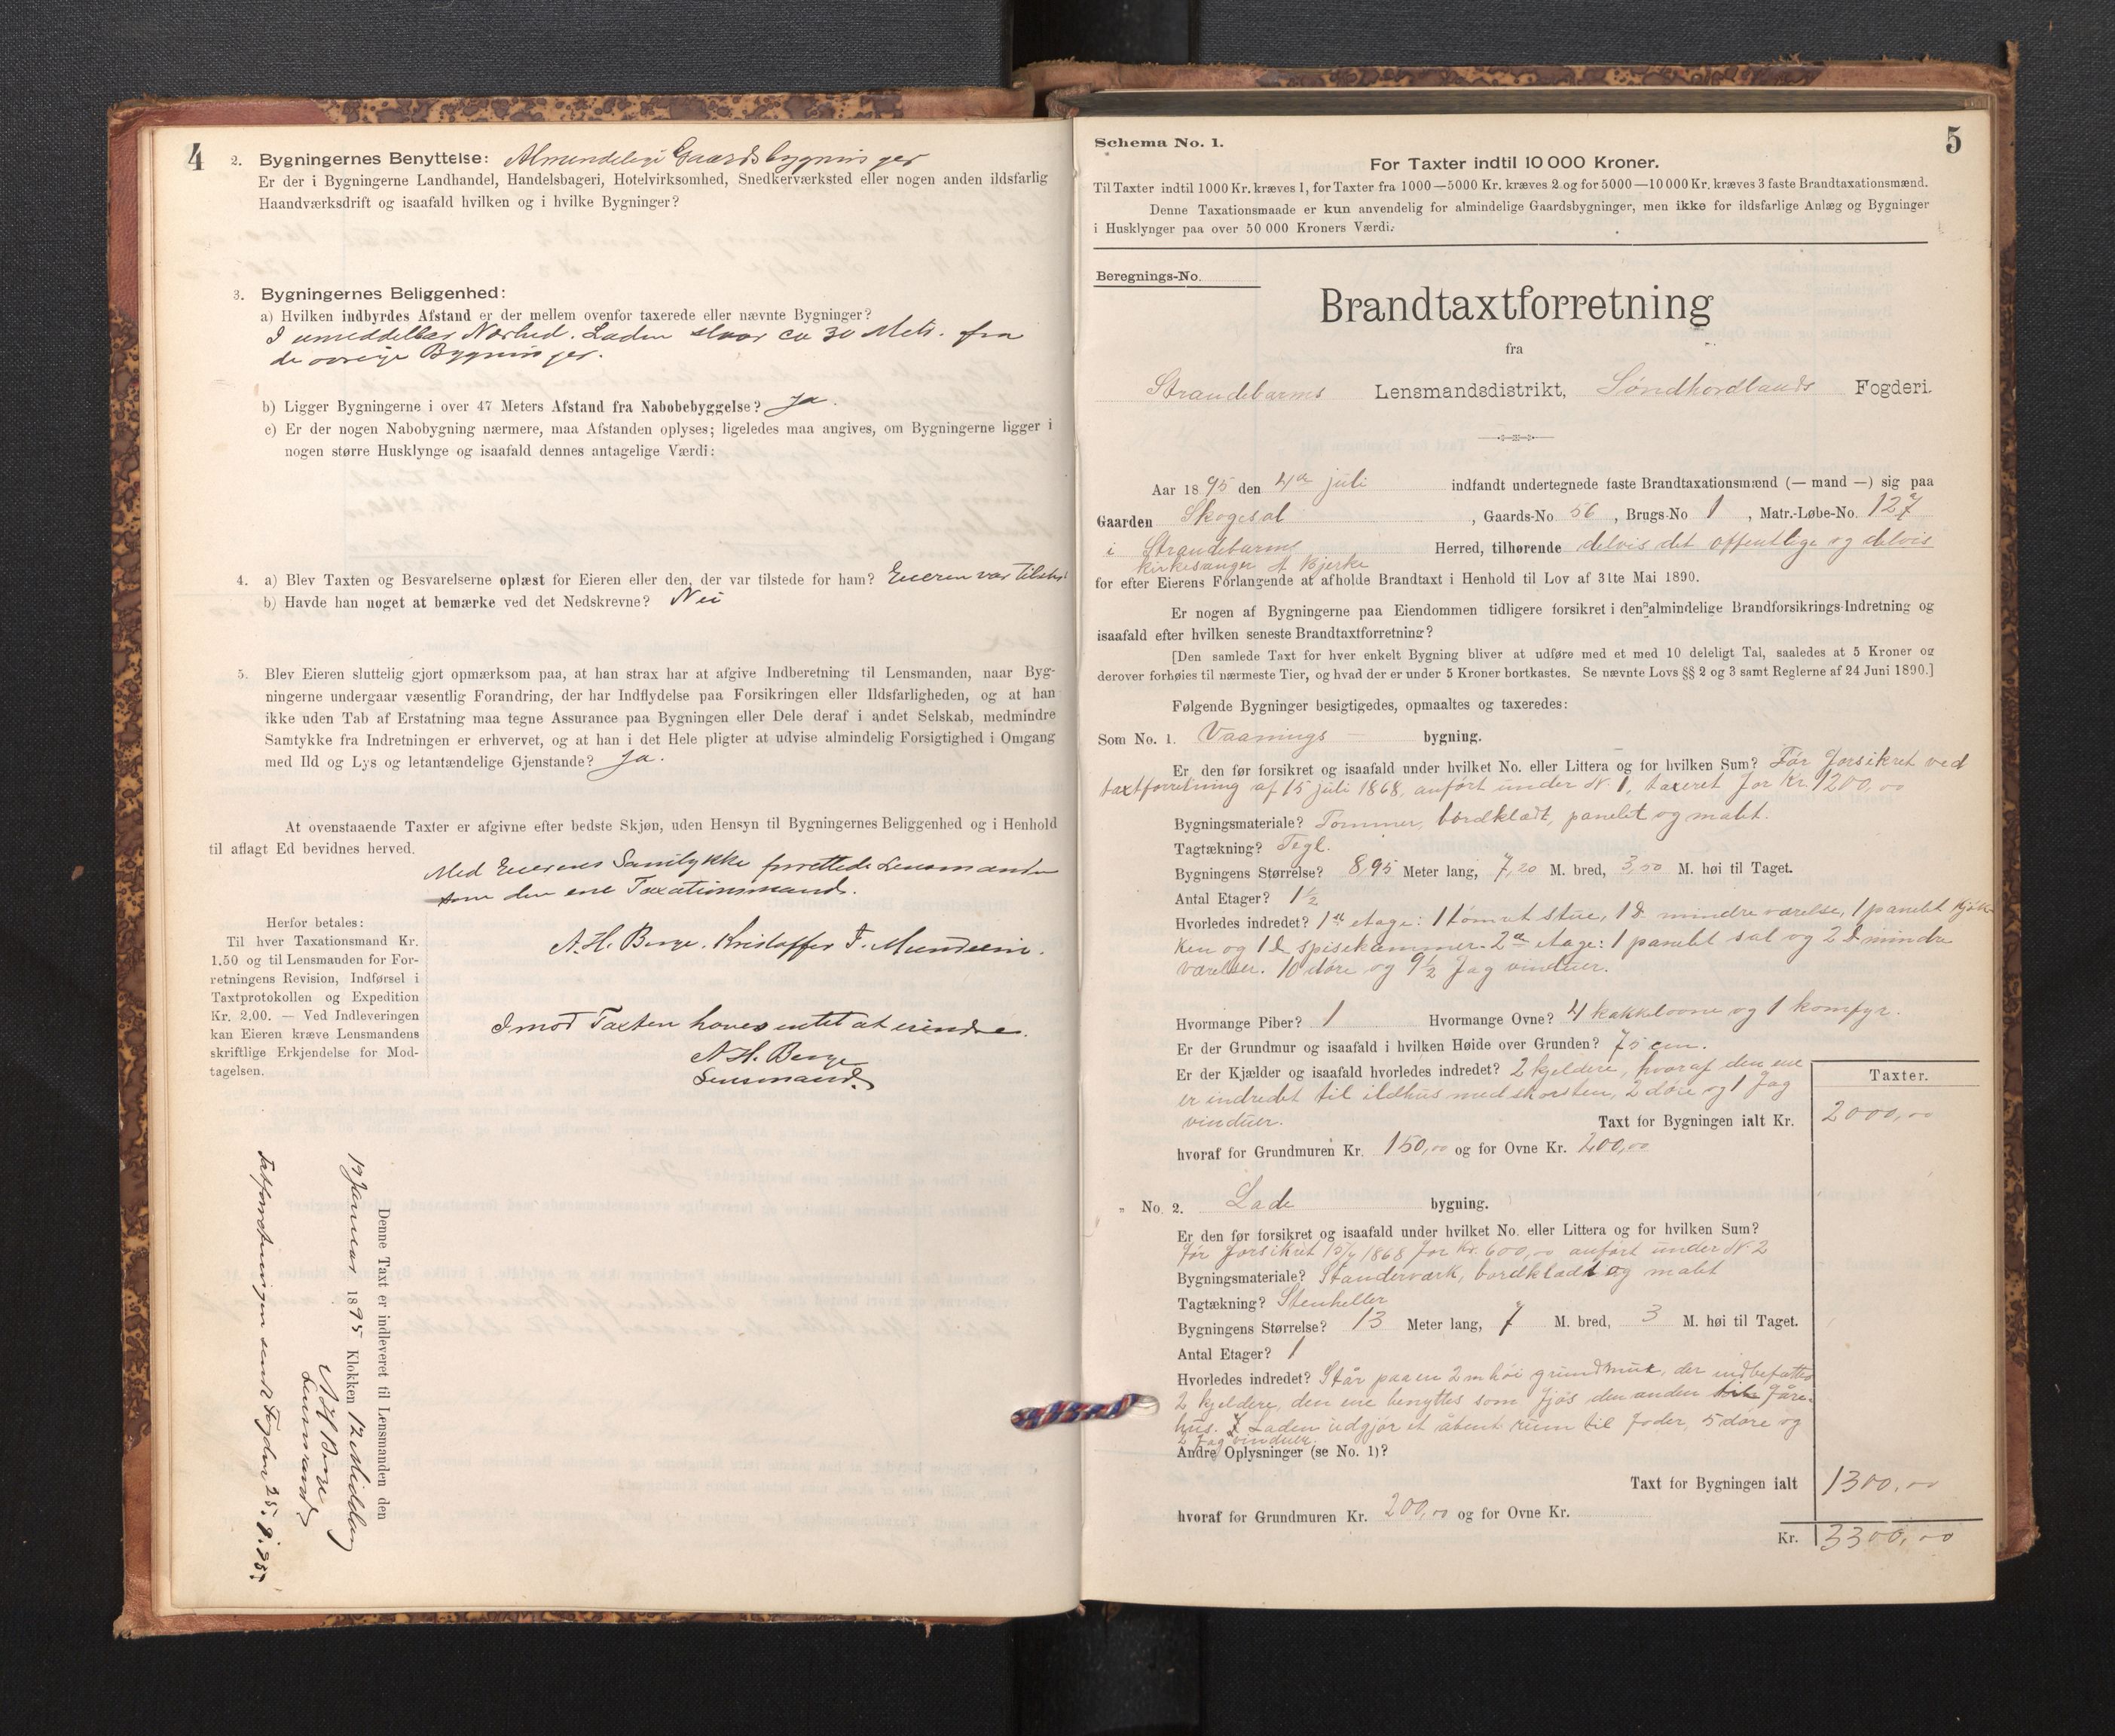 4
2. Bygningernes Benyttelse: Almindelige Gaardsbygninger
Er der i Bygningerne Landhandel, Handelsbageri, Hotelvirksomhed, Snedkerværksted eller nogen anden ildsfarlig
Haandværksdrift og isaafald hvilken og i hvilke Bygninger?
3. Bygningernes Beliggenhed:
a) Hvilken indbyrdes Afstand er der mellem ovenfor taxerede eller nævnte Bygninger?
I umiddelbar Nærhed. Laden staar ca 30 Metr. fra
de øvrige Bygninger.
b) Ligger Bygningerne i over 47 Meters Afstand fra Nabobebyggelse? Ja.
c) Er der nogen Nabobygning nærmere, maa Afstanden oplyses; ligeledes maa angives, om Bygningerne ligger i
nogen større Husklynge og isaafald dennes antagelige Værdi:
4. a) Blev Taxten og Besvarelserne oplæst for Eieren eller den, der var tilstede for ham? Eieren var tilsted
b) Havde han noget at bemærke ved det Nedskrevne? Nei
5. Blev Eieren sluttelig gjort opmærksom paa, at han strax har at afgive Indberetning til Lensmanden, naar Byg-
ningerne undergaar væsentlig Forandring, der har Indflydelse paa Forsikringen eller Ildsfarligheden, og at han
ikke uden Tab af Erstatning maa tegne Assurance paa Bygningen eller Dele deraf i andet Selskab, medmindre
Samtykke fra Indretningen er erhvervet, og at han i det Hele pligter at udvise almindelig Forsigtighed i Omgang
med Ild og Lys og letantændelige Gjenstande? Ja.
At ovenstaaende Taxter er afgivne efter bedste Skjøn, uden Hensyn til Bygningernes Beliggenhed og i Henhold
til aflagt Ed bevidnes herved.
Med Eierens Samtykke forrettede Lensmanden
som den ene Taxationsmand.
A. H. Berge. Kristoffer T. Mundheim.
Herfor betales:
Til hver Taxationsmand Kr.
1.50 og til Lensmanden for For-
retningens Revision, Indførsel i
Taxtprotokollen og Expedition
Kr. 2.00. — Ved Indleveringen
kan Eieren kræve Lensmandens
skriftlige Erkjendelse for Mod-
tagelsen.
Imod Taxten haves intet at erindre.
A. H. Berge
Lensmand.
Denne Taxt er indleveret til Lensmanden den
12 Januar 1895 Klokken 12 Middag
A H Berge
Lensmand
Taxtforretningen sendt Fogden 25. 9. 95.
5
Schema No. 1.
For Taxter indtil 10 000 Kroner.
Til Taxter indtil 1000 Kr. kræves 1, for Taxter fra 1000—5000 Kr. kræves 2 og for 5000—10000 Kr. kræves 3 faste Brandtaxationsmænd.
Denne Taxationsmaade er kun anvendelig for almindelige Gaardsbygninger, men ikke for ildsfarlige Anlæg og Bygninger
i Husklynger paa over 50 000 Kroners Værdi.
Beregnings-No.
Brandtaxtforretning
fra
Strandebarms Lensmandsdistrikt, Søndhordlands Fogderi.
Aar 1895 den 4de juli indfandt undertegnede faste Brandtaxationsmænd (— mand —) sig paa
Gaarden Skogesal, Gaards-No 56, Brugs-No 1, Matr.-Løbe-No. 127
i Strandebarms Herred, tilhørende delvis det offentlige og delvis
kirkesanger A Bjerke
for efter Eierens Forlangende at afholde Brandtaxt i Henhold til Lov af 31te Mai 1890.
Er nogen af Bygningerne paa Eiendommen tidligere forsikret i den almindelige Brandforsikrings-Indretning og
isaafald efter hvilken seneste Brandtaxtforretning?
[Den samlede Taxt for hver enkelt Bygning bliver at udføre med et med 10 deleligt Tal, saaledes at 5 Kroner og
derover forhøies til nærmeste Tier, og hvad der er under 5 Kroner bortkastes. Se nævnte Lovs §§ 2 og 3 samt Reglerne af 24 Juni 1890.]
Følgende Bygninger besigtigedes, opmaaltes og taxeredes:
Som No. 1. Vaanings bygning.
Er den før forsikret og isaafald under hvilket No. eller Littera og for hvilken Sum? Før forsikret ved
taxtforretning af 15 juli 1868, anført under N. 1, taxeret for Kr. 1200,00
Bygningsmateriale? Tømmer, bordklædt, panelet og malet.
Tagtækning? Tegl.
Bygningens Størrelse? 8,95 Meter lang, 7,20 M. bred, 3,50 M. høi til Taget.
Antal Etager? 1½
Hvorledes indredet? 1ste etage: 1 tømret stue, 1 do mindre værelse, 1 panelet kjøk-
ken og 1 do spisekammer. 2den etage: 1 panelet sal og 2 do mindre
værelser. 10 døre og 9½ fag vinduer.
Hvormange Piber? 1 Hvormange Ovne? 4 kakkelovne og 1 komfyr.
Er der Grundmur og isaafald i hvilken Høide over Grunden? 75 cm.
Er der Kjælder og isaafald hvorledes indredet? 2 kjeldere, hvoraf den ene
er indredet til ildhus med skorsten, 2 døre og 1 fag
vinduer.
Taxter.
Taxt for Bygningen ialt Kr. 2000,00
hvoraf for Grundmuren Kr. 150,00 og for Ovne Kr. 200,00
" No. 2. Lade bygning.
Er den før forsikret og isaafald under hvilket No. eller Littera og for hvilken Sum?
før forsikret 15/7 1868 for Kr. 600,00 anført under N. 2
Bygningsmateriale? Standerværk, bordklædt og malet
Tagtækning? Stenheller
Bygningens Størrelse? 13 Meter lang, 7 M. bred, 3 M. høi til Taget.
Antal Etager? 1
Hvorledes indredet? Står paa en 2 m høi grundmur, der indbefatter
2 kjeldere, den ene benyttes som fjøs den anden fåre-
hus. Laden udgjør et åbent rum til foder, 5 døre og
2 fag vinduer.
Andre Oplysninger (se No. 1)?
Taxt for Bygningen ialt 1300,00
hvoraf for Grundmuren Kr. 200,00 og for Ovne Kr.
Kr. 3300,00